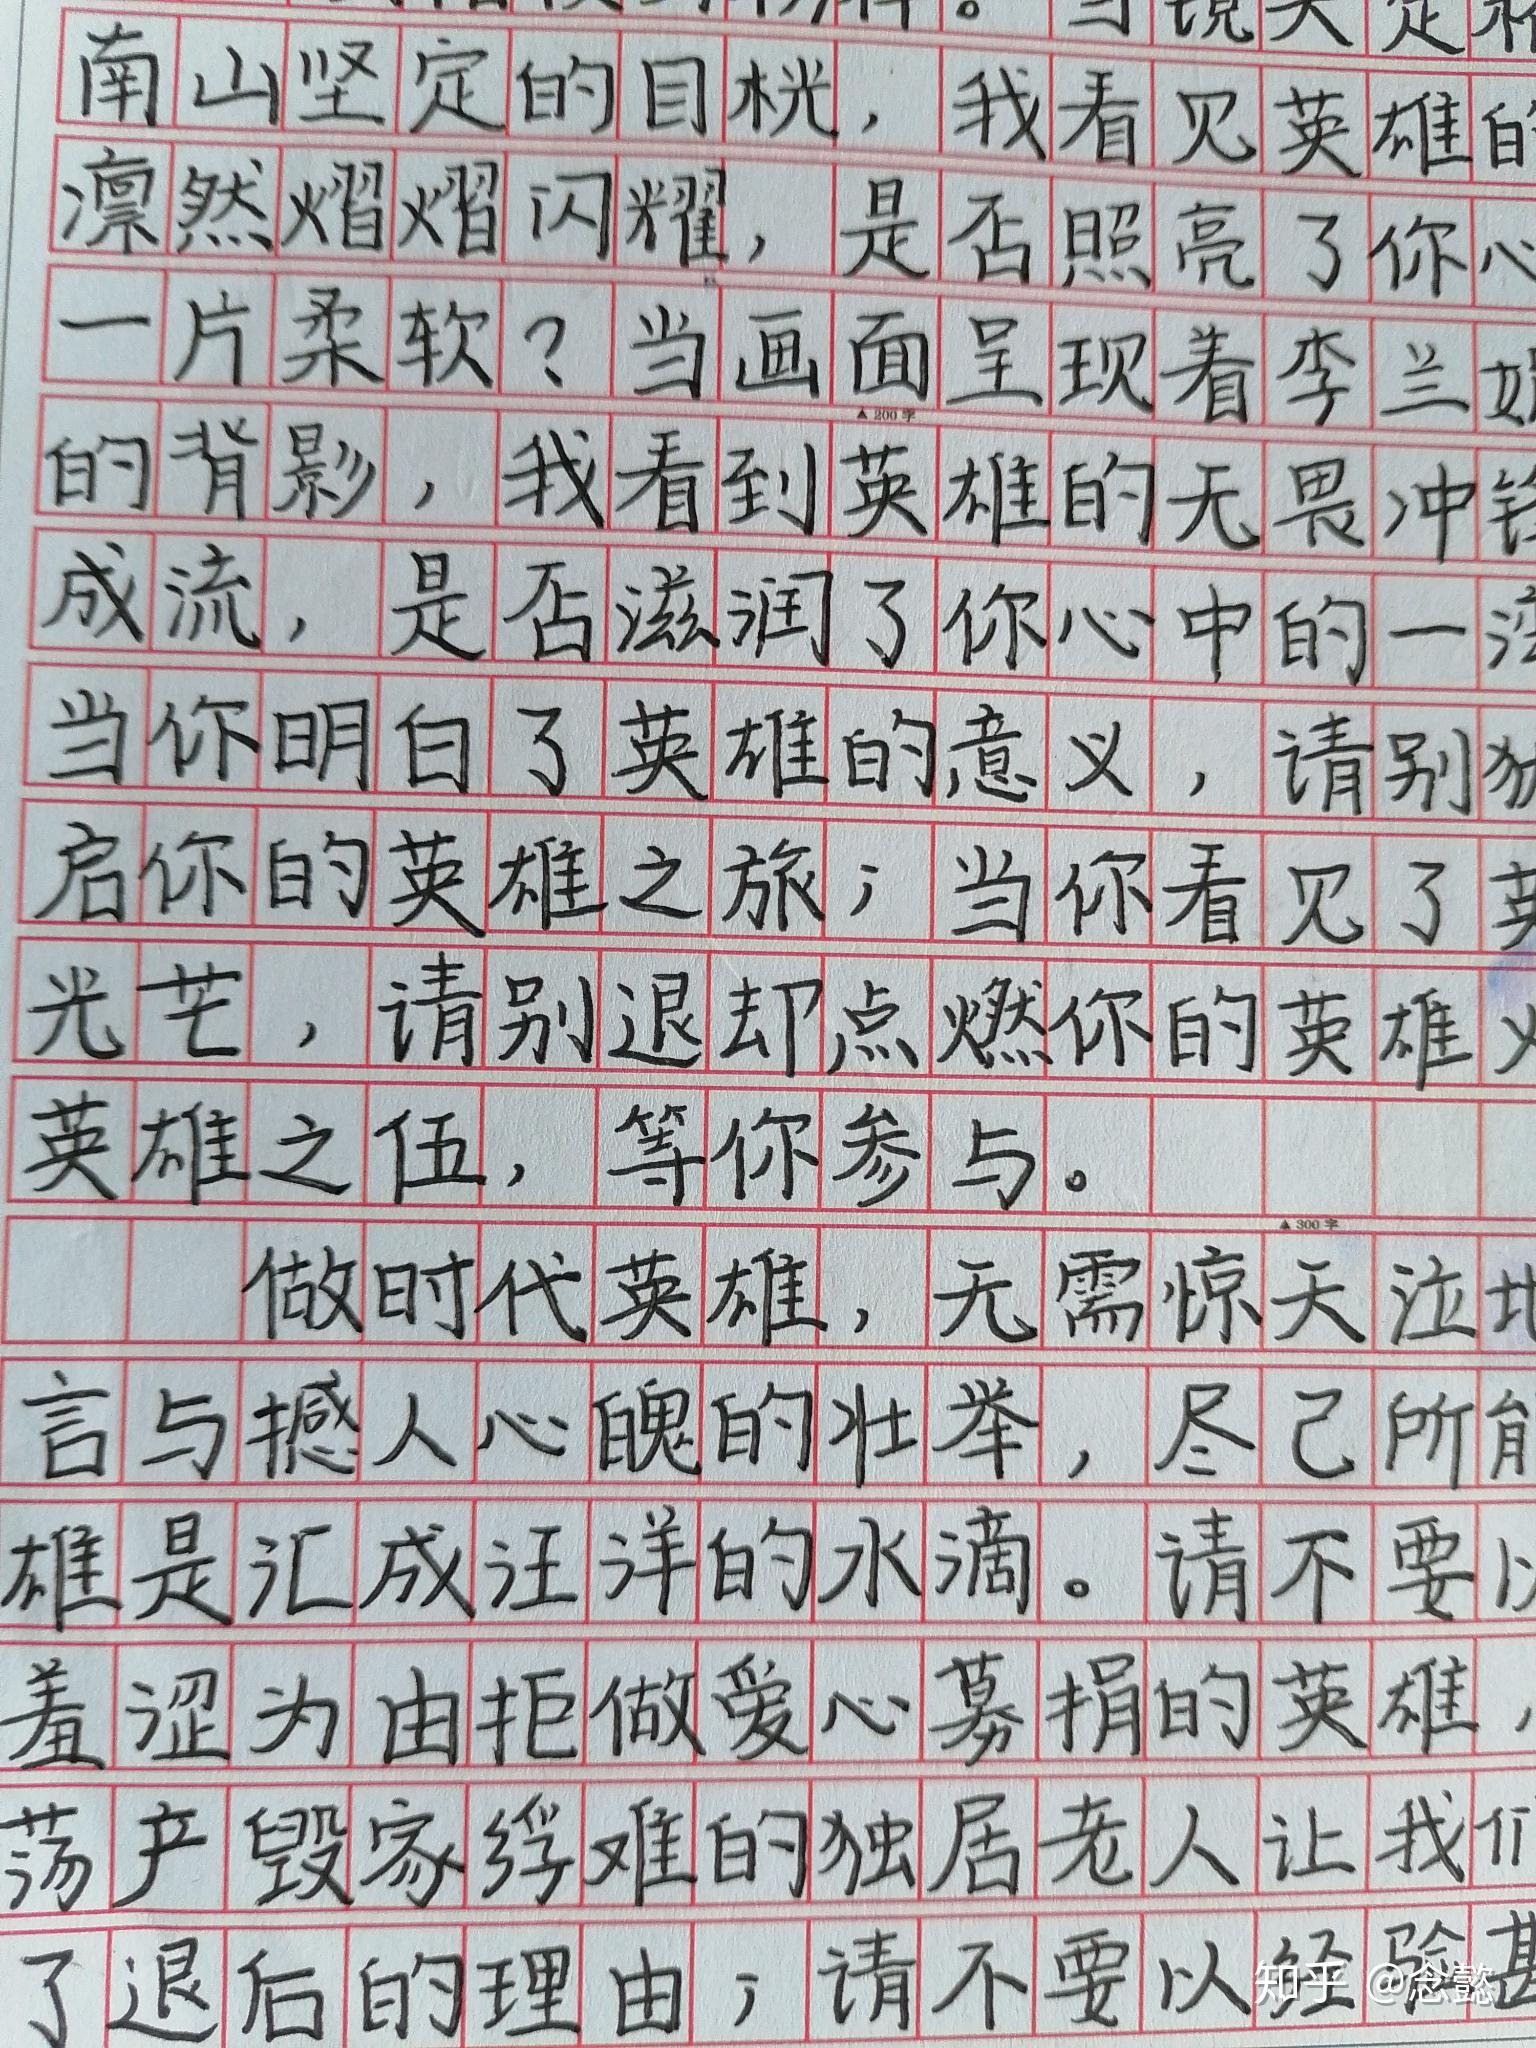 南山坚定的目桄，我看见英雄的
凛然熠熠闪耀，是否照亮了你心
一片柔软？当画面呈现着李兰
▲200字
的背影，我看到英雄的无畏冲锋
成流，是否滋润了你心中的一
当你明白了英雄的意义，请别
启你的英雄之旅；当你看见了英
光芒，请别退却点燃你的英雄
英雄之伍，等你参与。
▲300字
做时代英雄，无需惊天泣地
言与撼人心魄的壮举，尽己所能
雄是汇成汪洋的水滴。请不要以
羞涩为由拒做爱心募捐的英雄，
荡产毁家纾难的独居老人让我们
了退后的理由；请不要以经验甚
知乎 @念懿